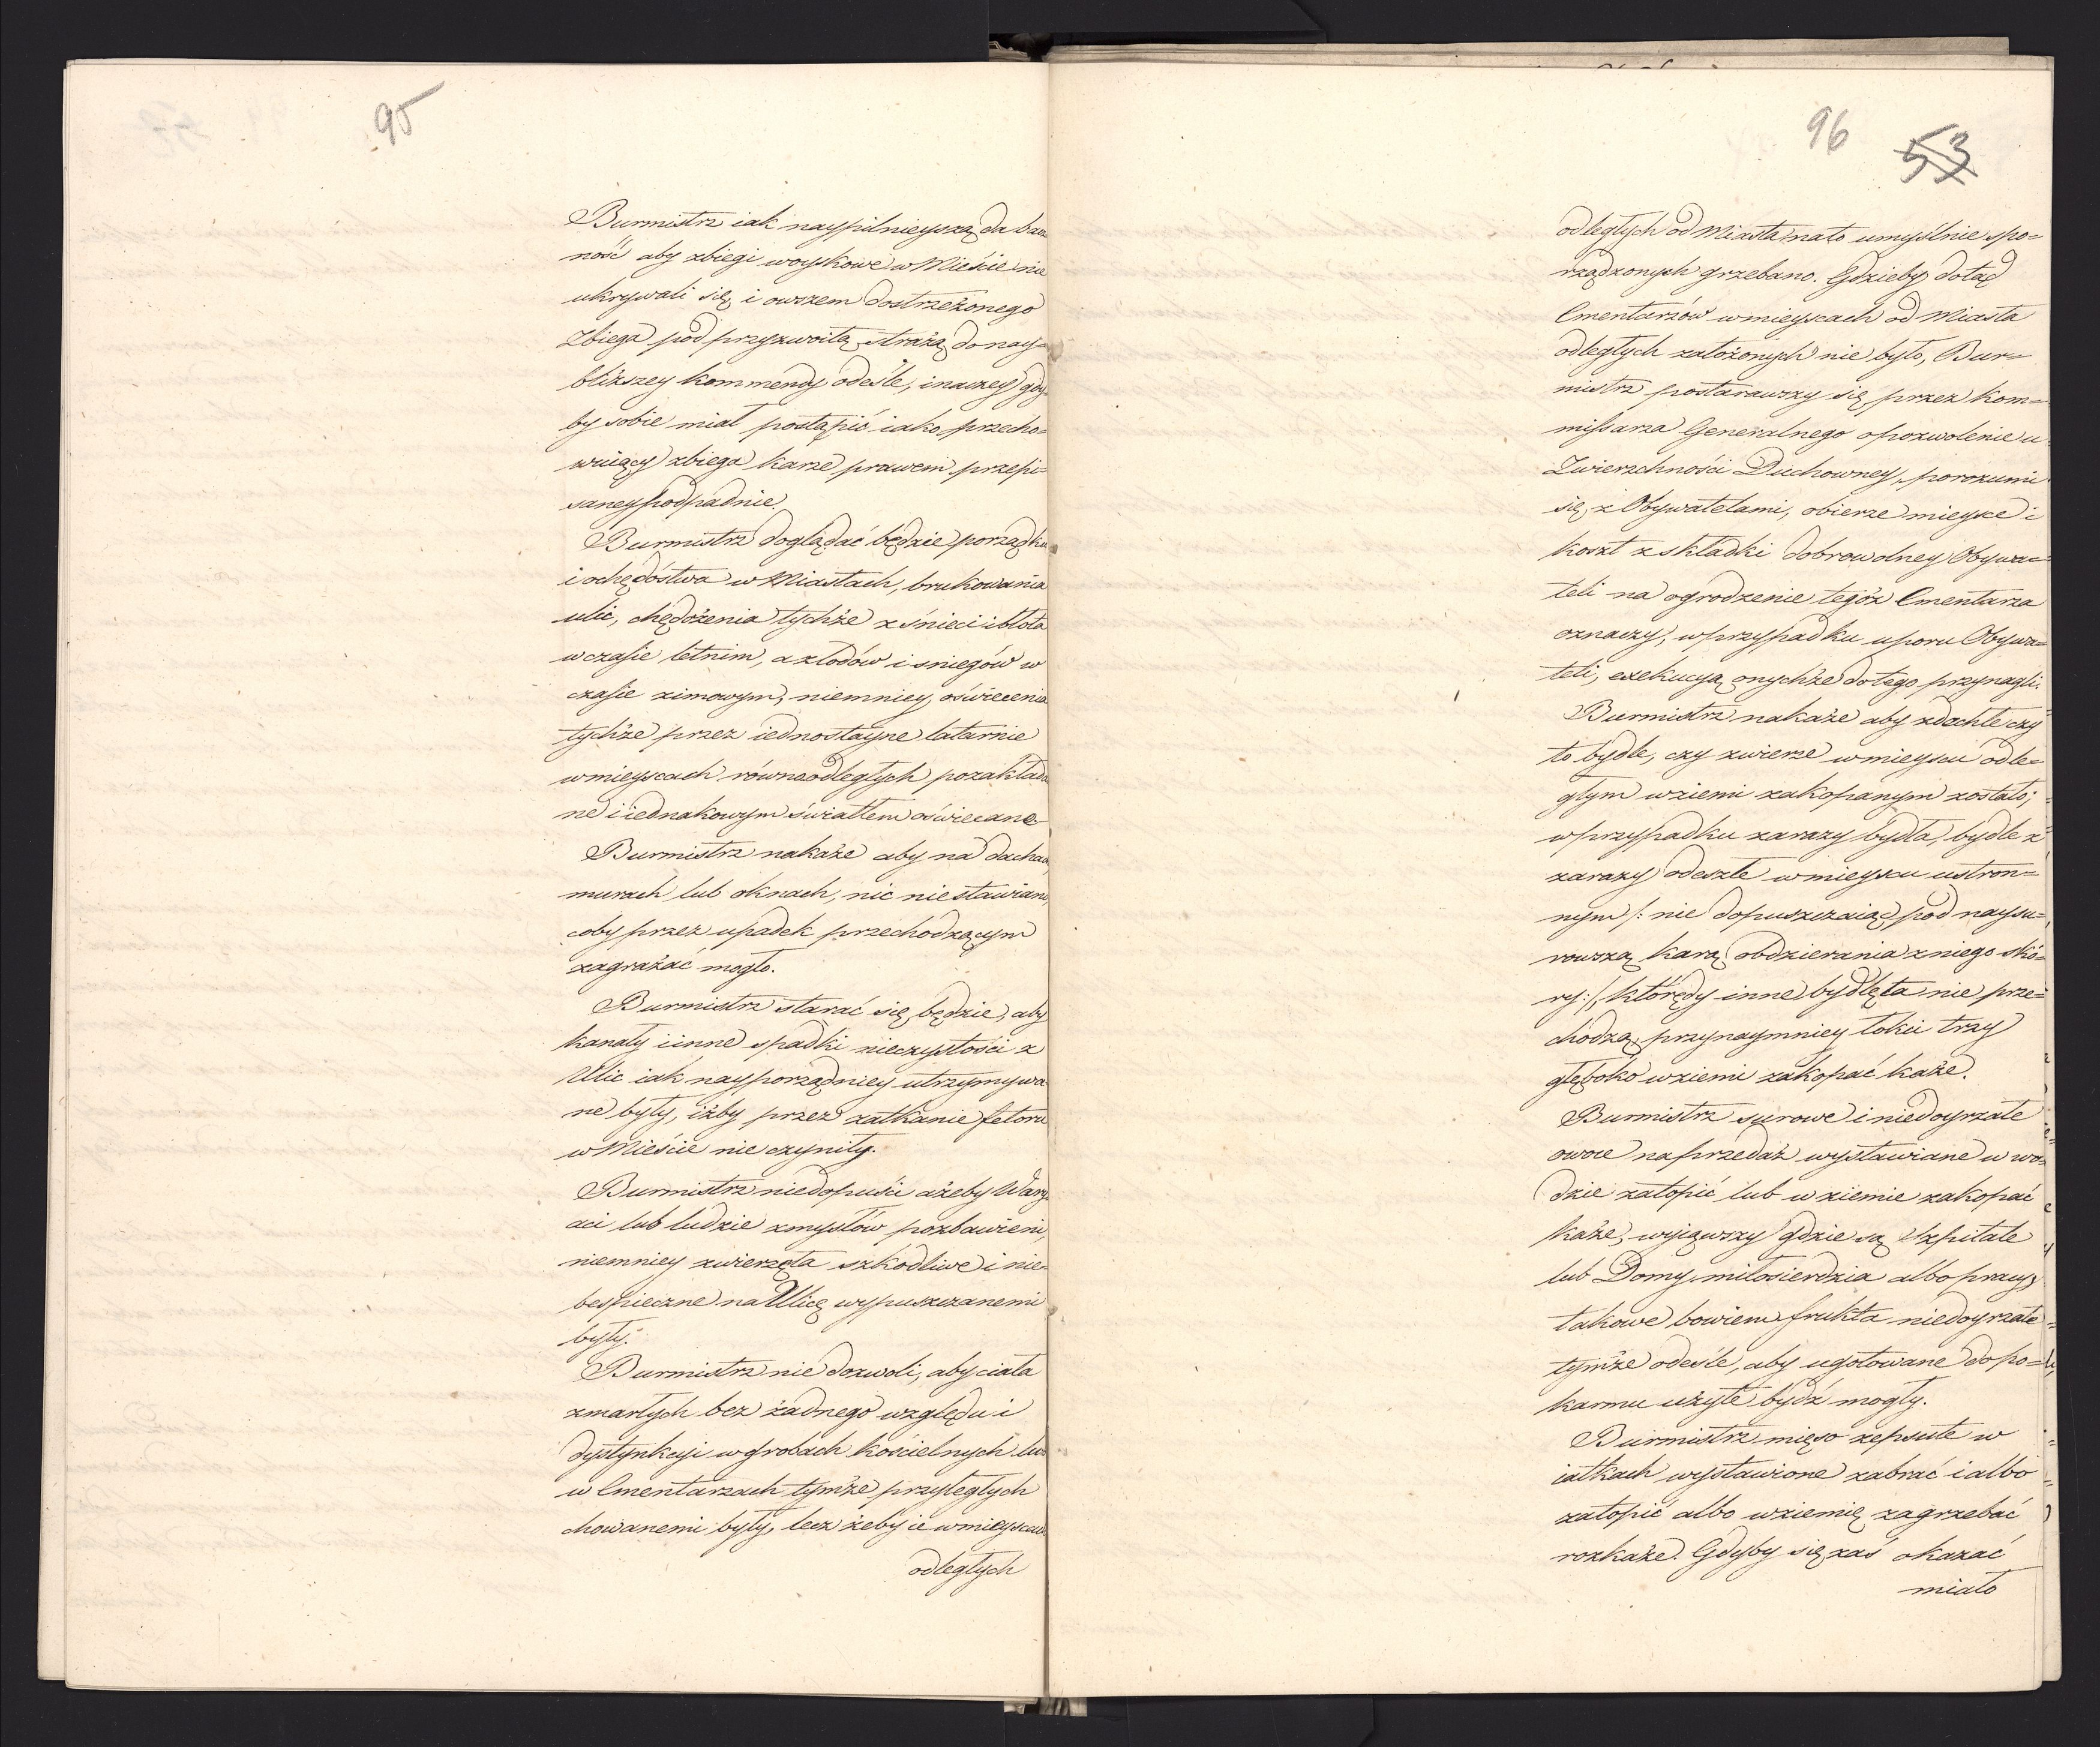 95
Burmistrz iak naypilnieyszą da bacz
ność aby zbiegi woyskowe w Mieście nie
ukrywali się i owszem dostrzeżonego
Zbiega pod przyzwoitą strażą do nay=
bliższey kommendy odeśle, inaczey gdy
by sobie miał postąpić iako przecho=
wuiący zbiega karze prawem przepi=
saney podpadnie.
Burmistrz doglądać będzie porządku
i ochędóstwa w Miastach, brukowania
ulic, chędożenia tychże z śnieci i błota
w czasie letnim, a z lodów i sniegów w
czasie zimowym, niemniey oświecenia
tychże przez iednostayne latarnie
w mieyscach równoodległych pozakłada
ne i iednakowym światłem oświecane
Burmistrz nakaże aby na dachach
murach lub oknach, nic nie stawiano,
coby przez upadek przechodzącym
zagrażać mogło.
Burmistrz starać się będzie, aby
kanały i inne spadki nieczystości z
Ulic iak nayporządniey utrzymywa
ne były, iżby przez zatkanie fetoru
w Mieście nie czyniły.
Burmistrz niedopuści ażeby Wary
aci lub ludzie zmysłów pozbawieni,
niemniey zwierzęta szkodliwe i nie=
bespieczne na Ulicę wypuszczanemi
były.
Burmistrz nie dozwoli, aby ciała
zmarłych bez żadnego względu i
dystynkcyi w grobach kościelnych lub
w Cmentarzach tymże przyległych
chowanemi były, lecz żeby ie w mieyscach
odległych
96
53
odległych od Miasta na to umyślnie spo=
rządzonych grzebano. Gdzieby dotąd
Cmentarzów w mieyscach od Miasta
odległych założonych nie było, Bur=
mistrz postarawszy się przez Kom=
missarza Generalnego o pozwolenie u
Zwierzchności Duchowney, porozumi
się z Obywatelami, obierze mieysce i
koszt z składki dobrowolney Obywa=
teli na ogrodzenie tegóż Cmentarza
oznaczy, w przypadku uporu Obywa=
teli, exekucyą onychże do tego przynagli.
Burmistrz nakaże aby zdechłe czy
to bydle, czy zwierze w mieyscu odle=
głym w ziemi zakopanym zostało;
w przypadku zarazy bydła, bydle z
zarazy odeszłe w mieyscu ustron=
nym /: nie dopuszczaiąc pod naysu=
rowszą karą obdzierania z niego skó=
ry :/, którędy inne bydlęta nie prze=
chodzą, przynaymniey łokci trzy
głęboko w ziemi zakopać każe.
Burmistrz surowe i niedoyrzałe
owoce na przedaż wystawiane w wo=
dzie zatopić lub w ziemie zakopać
każe, wyiąwszy gdzie są Szpitale
lub Domy miłosierdzia albo pracy,
takowe bowiem frukta niedoyrzałe
tymże odeśle, aby ugotowane do po=
karmu użyte bydź mogły.
Burmistrz mięso zepsute w
iatkach wystawione zabrać i albo
zatopić albo w ziemię zagrzebać
rozkaże. Gdyby się zaś okazać
miało